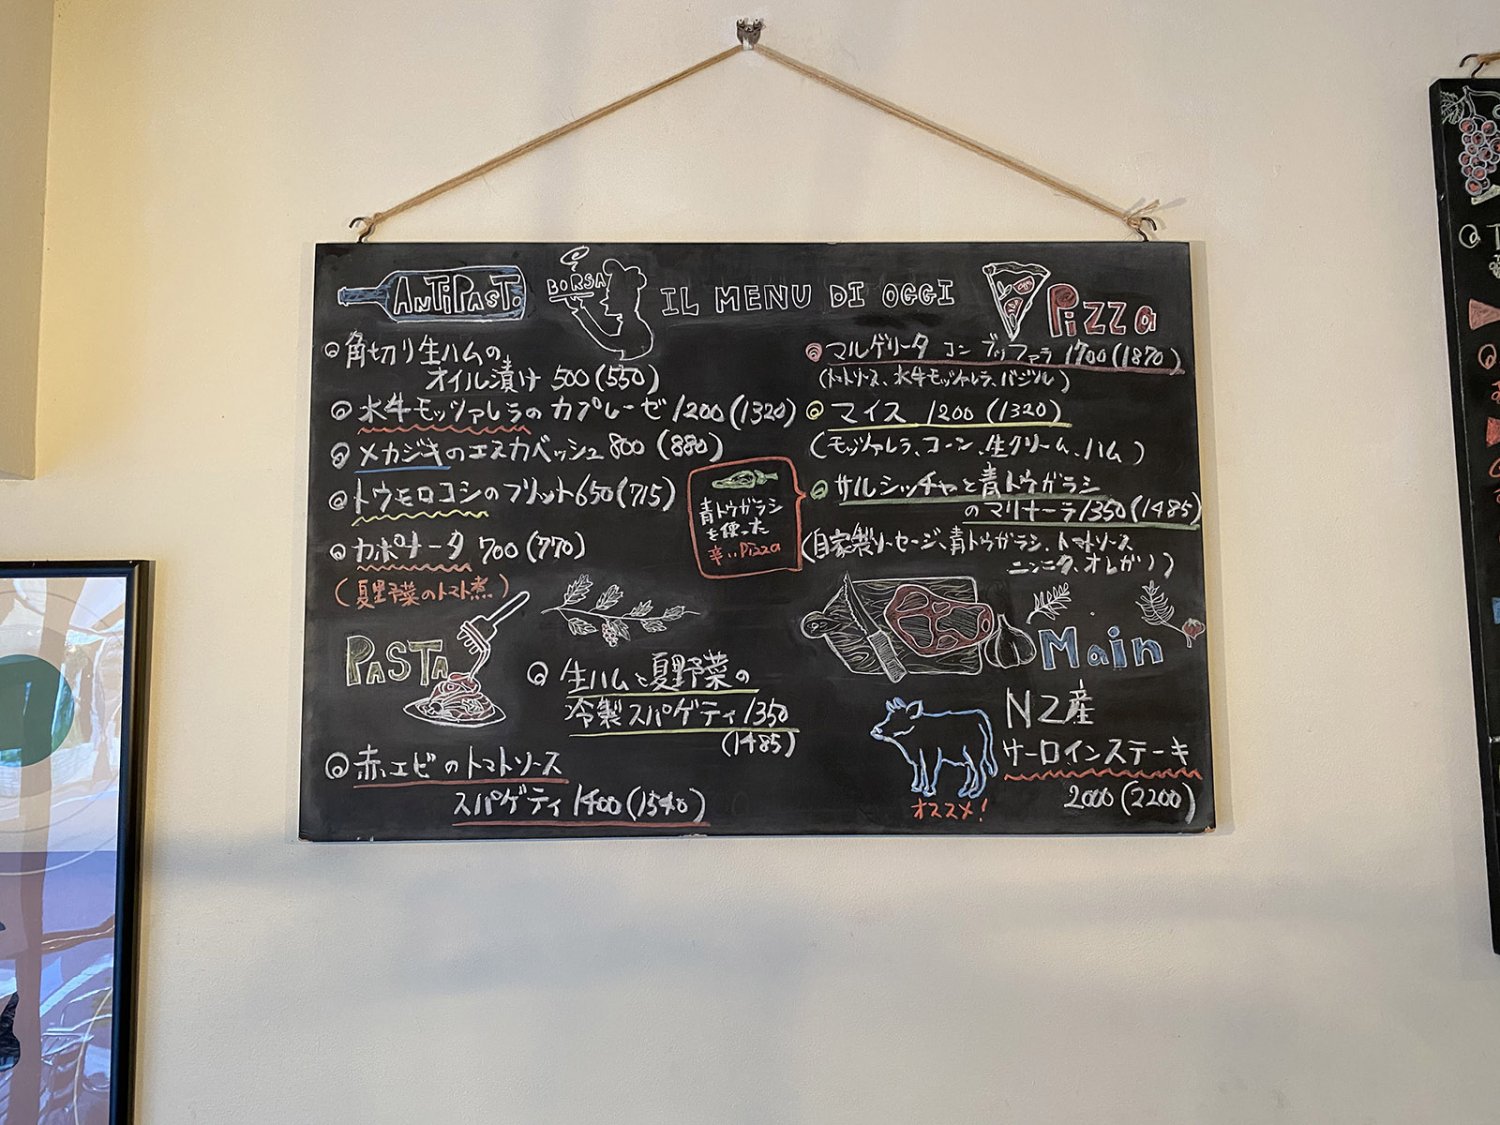 ANTIPASTO
BORSA
IL MENU DI OGGI
角切り生ハムの
オイル漬け 500(550)
水牛モッツァレラのカプレーゼ 1200(1320)
メカジキのエスカベッシュ 800(880)
トウモロコシのフリット 650(715)
カポナータ 700(770)
(夏野菜のトマト煮)
PASTA
生ハムと夏野菜の
冷製スパゲティ 1350
(1485)
赤エビのトマトソース
スパゲティ 1400(1540)
Pizza
マルゲリータ コン ブッファラ 1700(1870)
(トマトソース、水牛モッツァレラ、バジル)
マイス 1200(1320)
(モッツァレラ、コーン、生クリーム、ハム)
サルシッチャと青トウガラシ
のマリナーラ 1350(1485)
(自家製ソーセージ、青トウガラシ、トマトソース
ニンニク、オレガノ)
青トウガラシ
を使った
辛いPizza
Main
NZ産
サーロインステーキ
2000(2200)
オススメ!